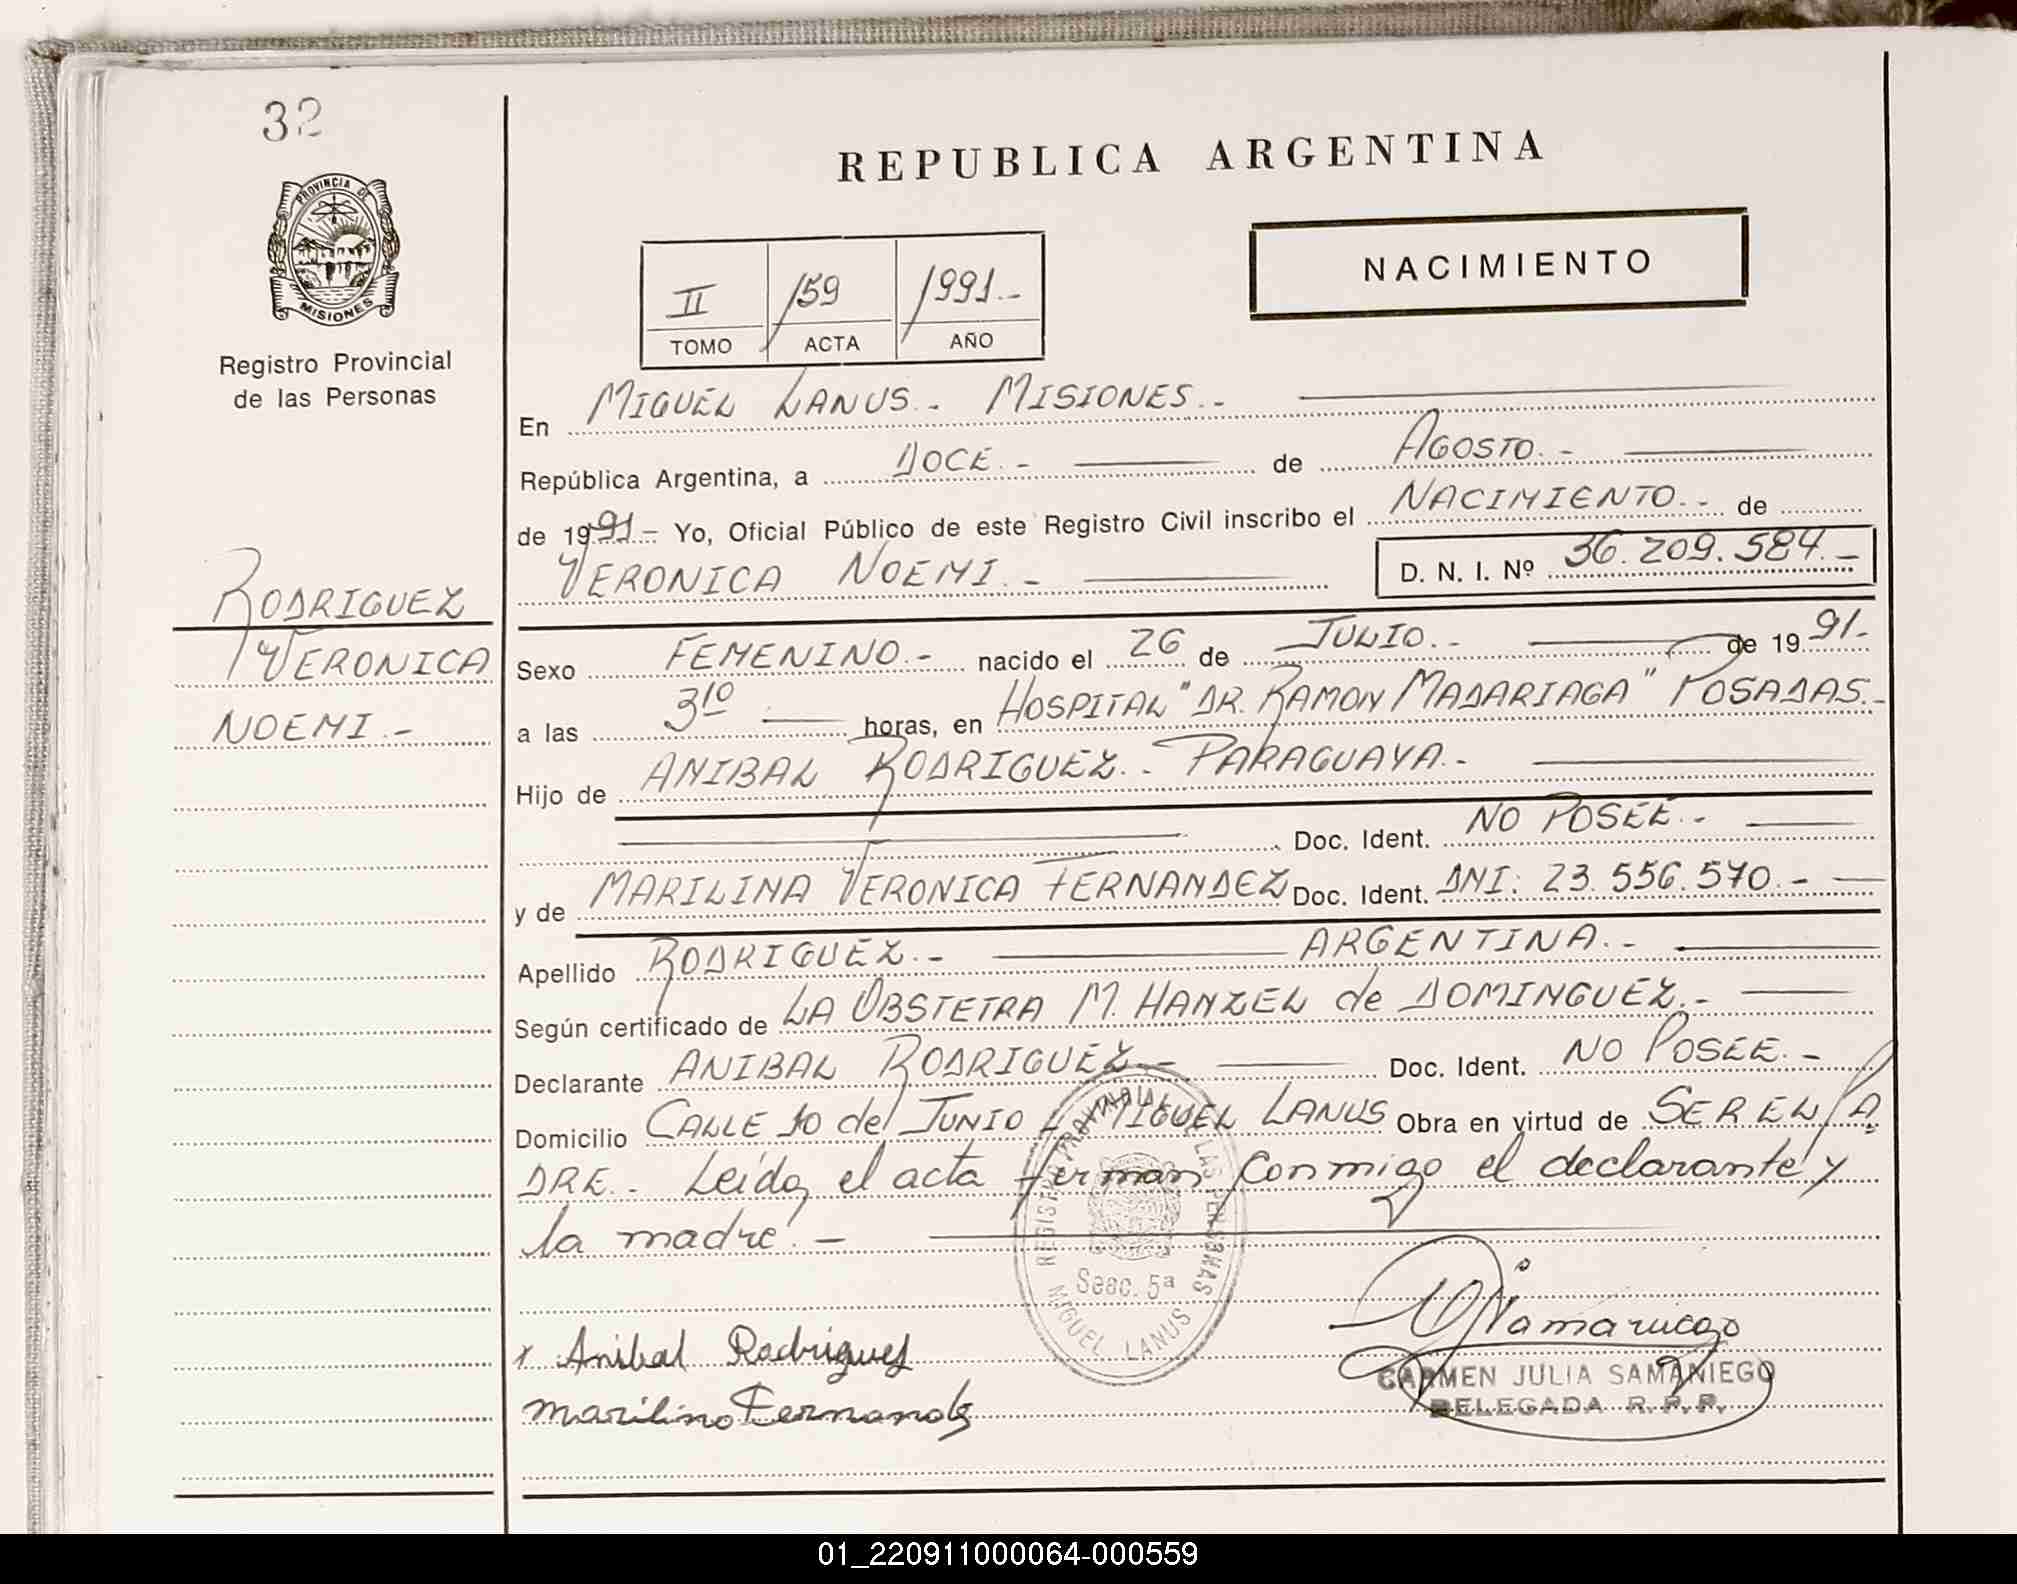 32
PROVINCIA DE
MISIONES
Registro Provincial
de las Personas
RODRIGUEZ
VERONICA
NOEMI.-
REPUBLICA ARGENTINA
NACIMIENTO
II 159 1991.-
TOMO ACTA AÑO
En MIGUEL LANUS.- MISIONES.-
República Argentina, a DOCE.- de AGOSTO.-
de 1991.- Yo, Oficial Público de este Registro Civil inscribo el NACIMIENTO.- de
VERONICA NOEMI.- D. N. I. Nº 36.209.584.-
Sexo FEMENINO.- nacido el 26 de JULIO.- de 1991.-
a las 3 10 horas, en HOSPITAL "DR. RAMON MADARIAGA" POSADAS.-
Hijo de ANIBAL RODRIGUEZ.- PARAGUAYA.-
Doc. Ident. NO POSEE.-
y de MARILINA VERONICA FERNANDEZ Doc. Ident. DNI: 23.556.570.-
Apellido RODRIGUEZ.- ARGENTINA.-
Según certificado de LA OBSTETRA M. HANZEL de DOMINGUEZ.-
Declarante ANIBAL RODRIGUEZ.- Doc. Ident. NO POSEE.-
Domicilio CALLE 10 de JUNIO - MIGUEL LANUS Obra en virtud de SER EL PA
DRE.- Leida el acta firman conmigo el declarante y
la madre.-
REGISTRO PROVINCIAL DE LAS PERSONAS
Secc. 5ª
MIGUEL LANUS
x Anibal Rodriguez
Marilina Fernandez
CARMEN JULIA SAMANIEGO
DELEGADA R.P.P.
01_220911000064-000559